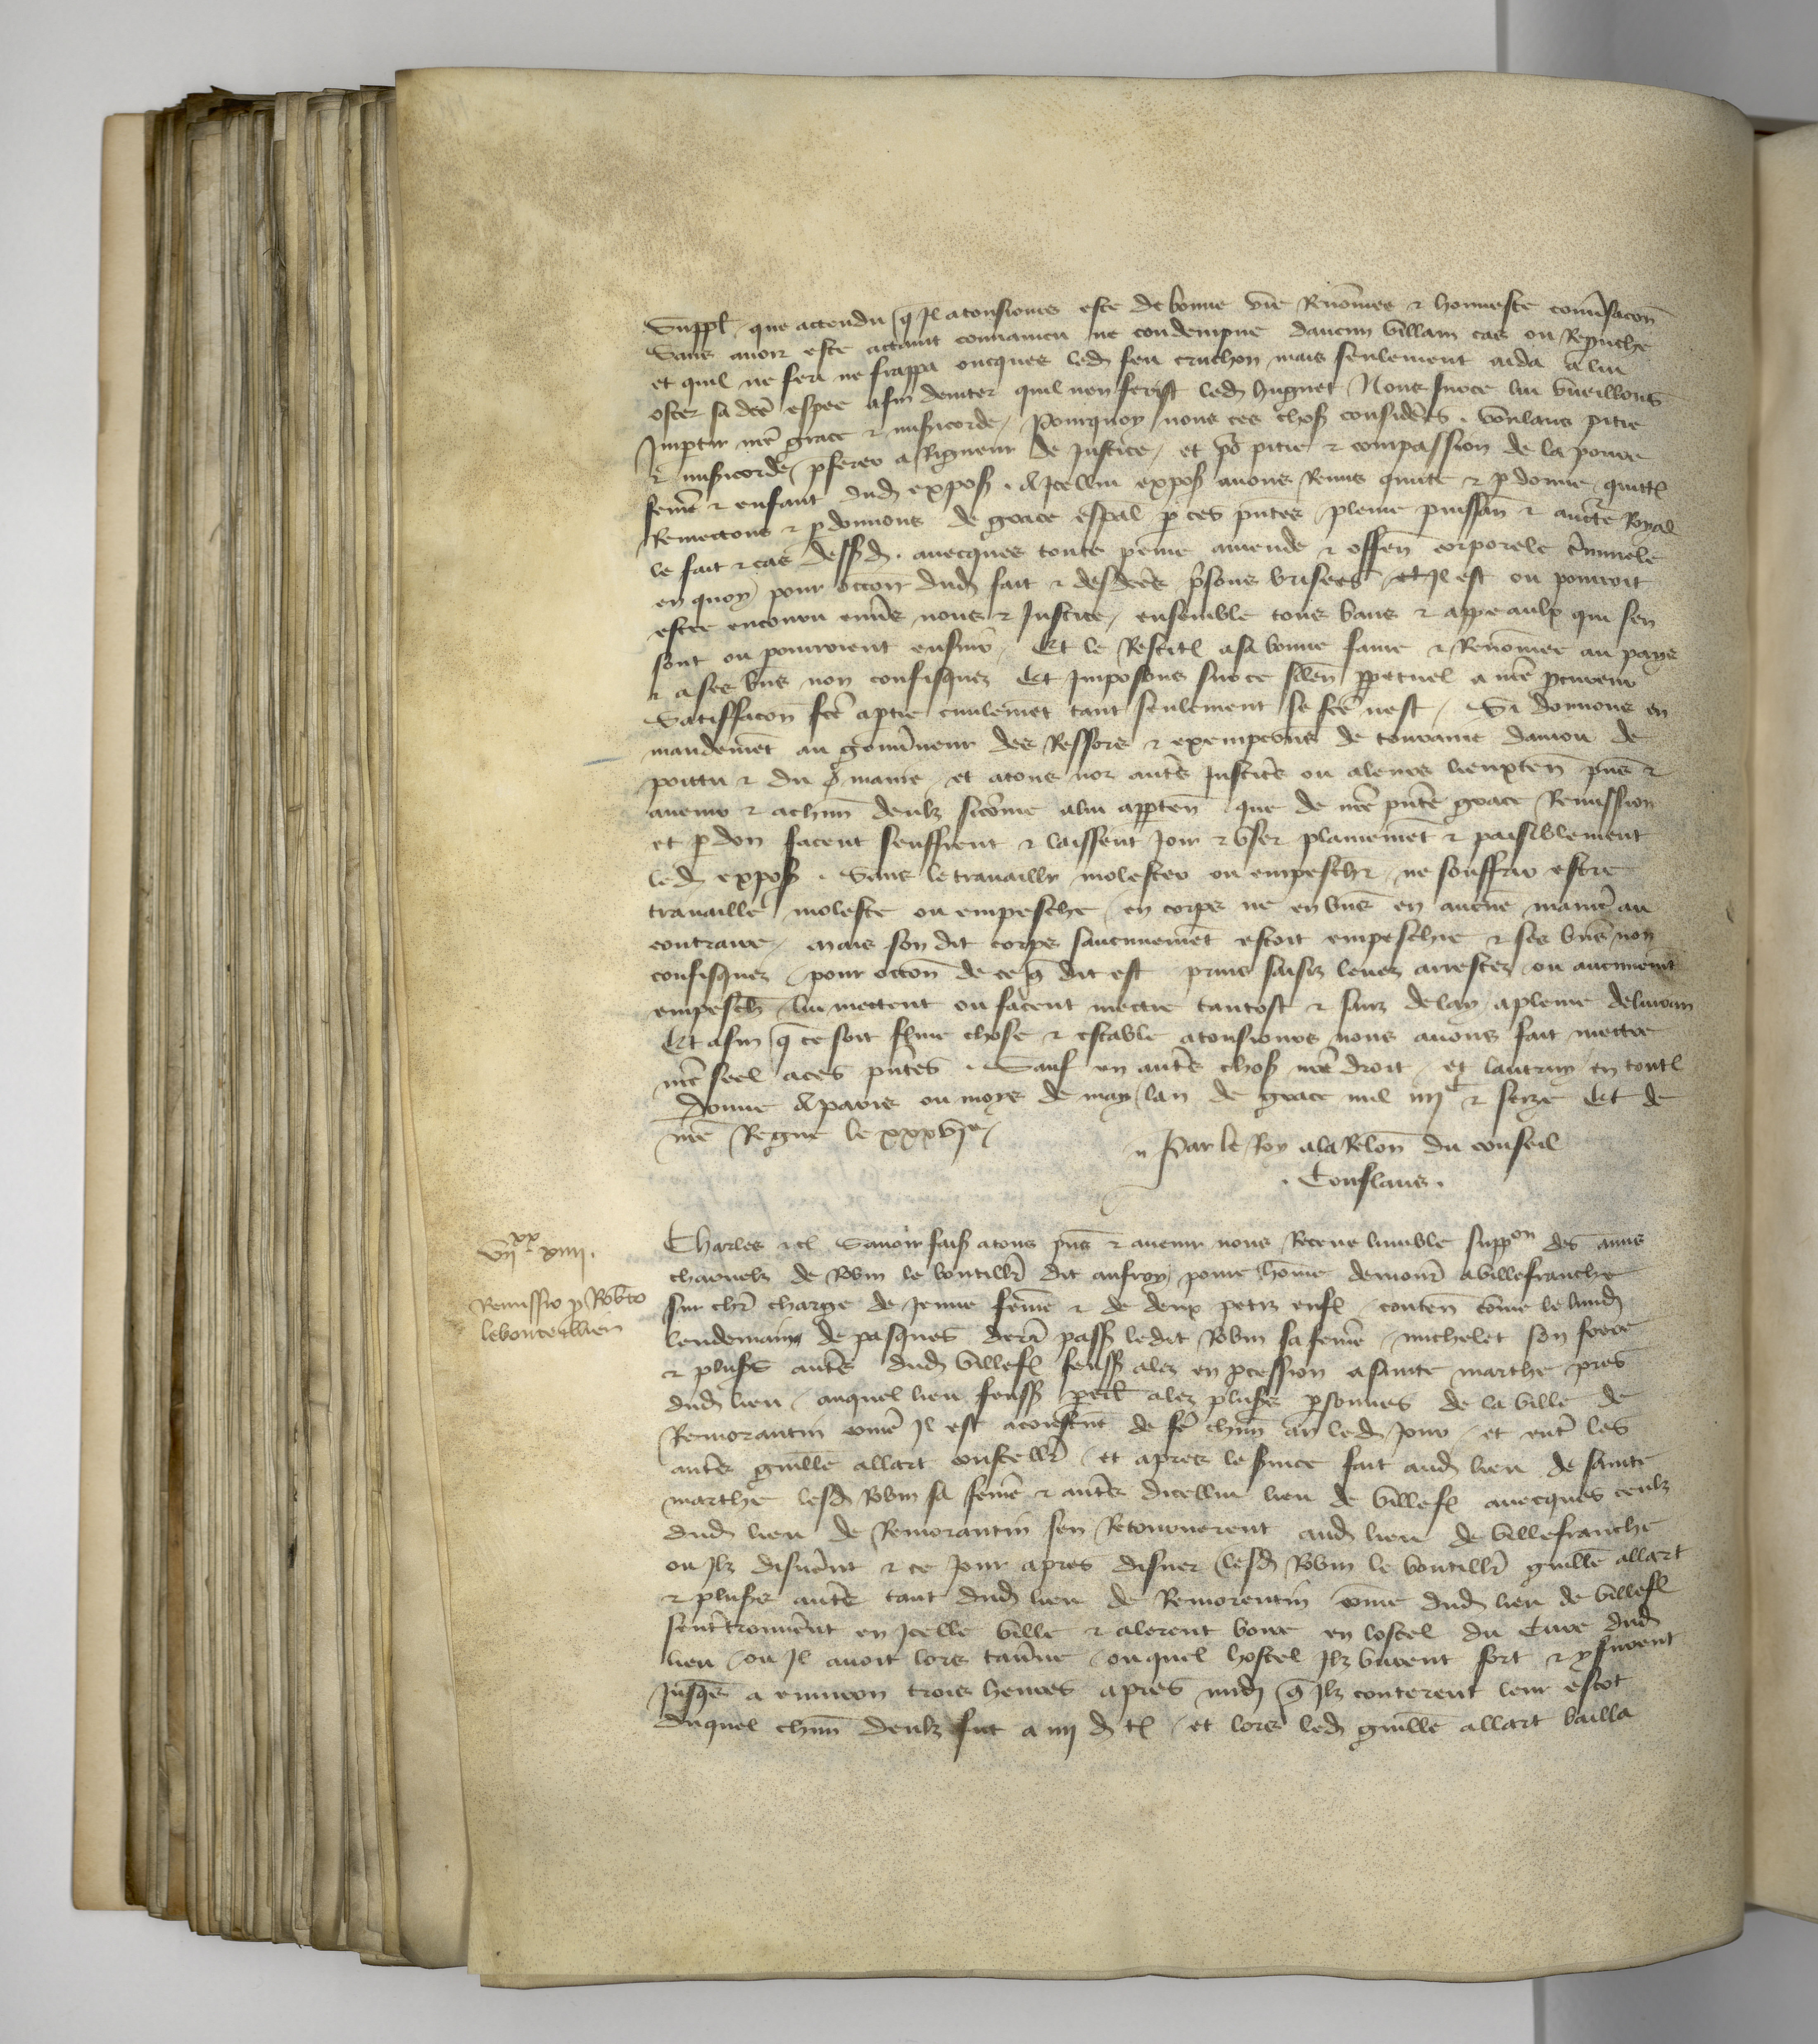 Suppl. que attendu q Il a tousiours este de bonne vie Renōmee & honneste conūsacōn
Sans avoir este attaint convaincu ne condempne daucun villain cas ou Repruche
et quil ne feri ne frappa oncques led feu cruchon mais seulement aida a lui
oster sa dcē espee afin deviter quil nen ferist led huguet Nous sur ce lui vueillons
Impartir nrē grace & misericorde, Pourquoy nous ces choses consideres. voulans pitie
& misericorde preferer a Rigueur de Justice, et pō pitie & compassion de la povre
femē & enfant dud exposs. A Icellui exposs avons Remis quitte & pdonne quittōs
Remectons & pdonnons de grace espal p ces pntes pleine puissan & auctē Royal
le fait & cas dessd. avecques toute peine amende & offen corporele criminele
en quoy pour occōn dud fait & desdces prisons brisees Il est ou pourroit
estre encouru envs nous & Justice, ensemble tous bans & appeaulx qui sen
sont ou pourroient ensuir, Et le Restitōs a sa bonne fame & Renōmee au pays
& a ses biēs non confisquez Et Imposons sur ce silen ppetuel a nrē pcureur
Satisfacōn fcē a ptie civilemet tant seulement se fcē nest, Si donnons en
mandemēt au gouvneur des Ressors & exempcōns de touraine danjou de
poitou & du maine, et a tous noz autēs Justicēs ou a leurs lieuxten pns &
avenir & a chun deulz sicōme a lui apptenē que de nrē pntē grace Remission
et pdon facent seuffrent & laissent Joir & vser plainemēt & paisiblement
led exposs. Sans le travaillr molester ou empeschr ne souffrir estre
travaille moleste ou empesche en corps ne en biēs en aucune manierē au
contraire, mais son dit corps saucunemēt estoit empeschie & ses biēs non
confisquez pour occōn de ce q dit est prins saisiz levez arrestez ou aucunemt
empeschs lui mettent ou facent mectre tantost & sanz delay a pleine delivran
Et afin q ce soit ferme chose & estable a tousiours nous avons fait mettre
nrē seel a ces pntēs. Sauf en autēs chosēs nrē droit et lautruy en toutēs
Donne A paris ou moys de may lan de grace mil iiiic & seize Et de
nrē Regne le xxxvie
Par le Roy a la Relon du conseil
. Conflans .
viixx xiiii.
Remissio p Robto
le bouteillier
Charles etc Savoir faisōs a tous pns & avenir nous Receue lumble suppon des amis
charnelz de Robin le boutillr dit anfroy povre home demourt a villefranche
sur chr charge de Jeune femē & de deux petiz enfs, contenē cōme le lundi
lendemain de pasques derr passē ledit Robin sa femē, michelet son frere
& plusrs autēs dud villefr feussēt alez en pcession a saincte marthe pres
dud lieu auquel lieu feussēt pareillt alez plusrs psonnes de la ville de
Remorantin cōme Il est acoustume de fē chun an led Jour, et entē les
autēs guillē allart coustellr, et apres le svice fait aud lieu de saincte
marthe lesd Robin sa femē & autēs dicellui lieu de villefr avecques ceulz
dud lieu de Remorantin sen Retournerent aud lieu de villefranche
ou Ilz disnērnt & ce Jour apres disner lesd Robin le boutillr guillē allart
& plusrs autēs tant dud lieu de Remorentin cōme dud lieu de villefr
sentrētrouvērnt en Icelle ville & alerent boire en lostel du Cure dud
lieu ou Il avoit lors tavne ouquel hostel Ilz burent fort & y furent
Jusqs a environ trois heures apres midi q Ilz conterent leur escot
duquel chun deulz fut a iiii d ts, et lors led guillē allart bailla